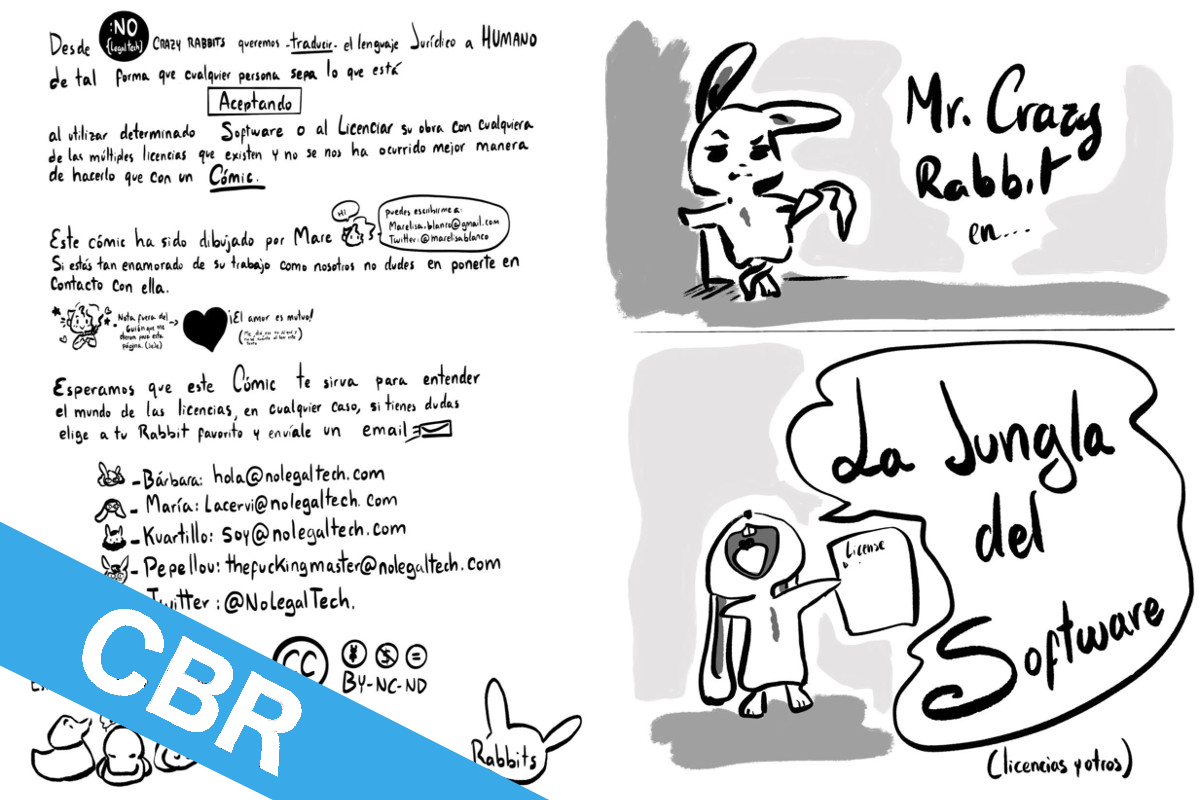 Desde :NO {legaltech} CRAZY RABBITS queremos -traducir- el lenguaje Jurídico a HUMANO
de tal forma que cualquier persona sepa lo que está
Aceptando
al utilizar determinado Software o al Licenciar su obra con cualquiera
de las múltiples licencias que existen y no se nos ha ocurrido mejor manera
de hacerlo que con un Cómic.
Este cómic ha sido dibujado por Mare
Hi
puedes escribirme a:
Marelisa.blanco@gmail.com
Twitter: @marelisablanco
Si estás tan enamorado de su trabajo como nosotros no dudes en ponerte en
Contacto con ella.
Nota fuera del
Guión que me
página. (jeje)
¡El amor es mutuo!
Esperamos que este Cómic te sirva para entender
el mundo de las licencias, en cualquier caso, si tienes dudas
elige a tu Rabbit favorito y envíale un email
- Bárbara: hola@nolegaltech.com
- María: Lacervi@nolegaltech.com
- Kuartillo: soy@nolegaltech.com
- Pepellou: thefuckingmaster@nolegaltech.com
Twitter: @NoLegalTech.
CC
BY-NC-ND
Rabbits
CBR
Mr. Crazy
Rabbit
en...
La Jungla
del
Software
License
(licencias y otros)